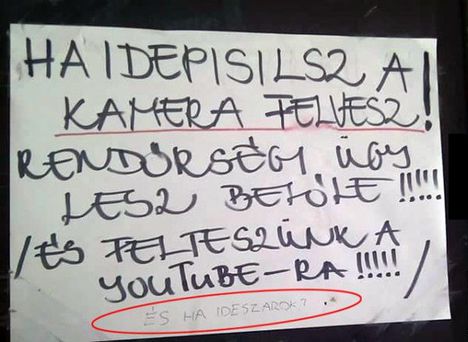 HA IDEPISILSZ A
KAMERA FELVESZ!
RENDŐRSÉGI ÜGY
LESZ BELŐLE !!!!!
/ÉS FELTESZÜNK A
YOUTUBE-RA !!!!! /
ÉS HA IDESZAROK?